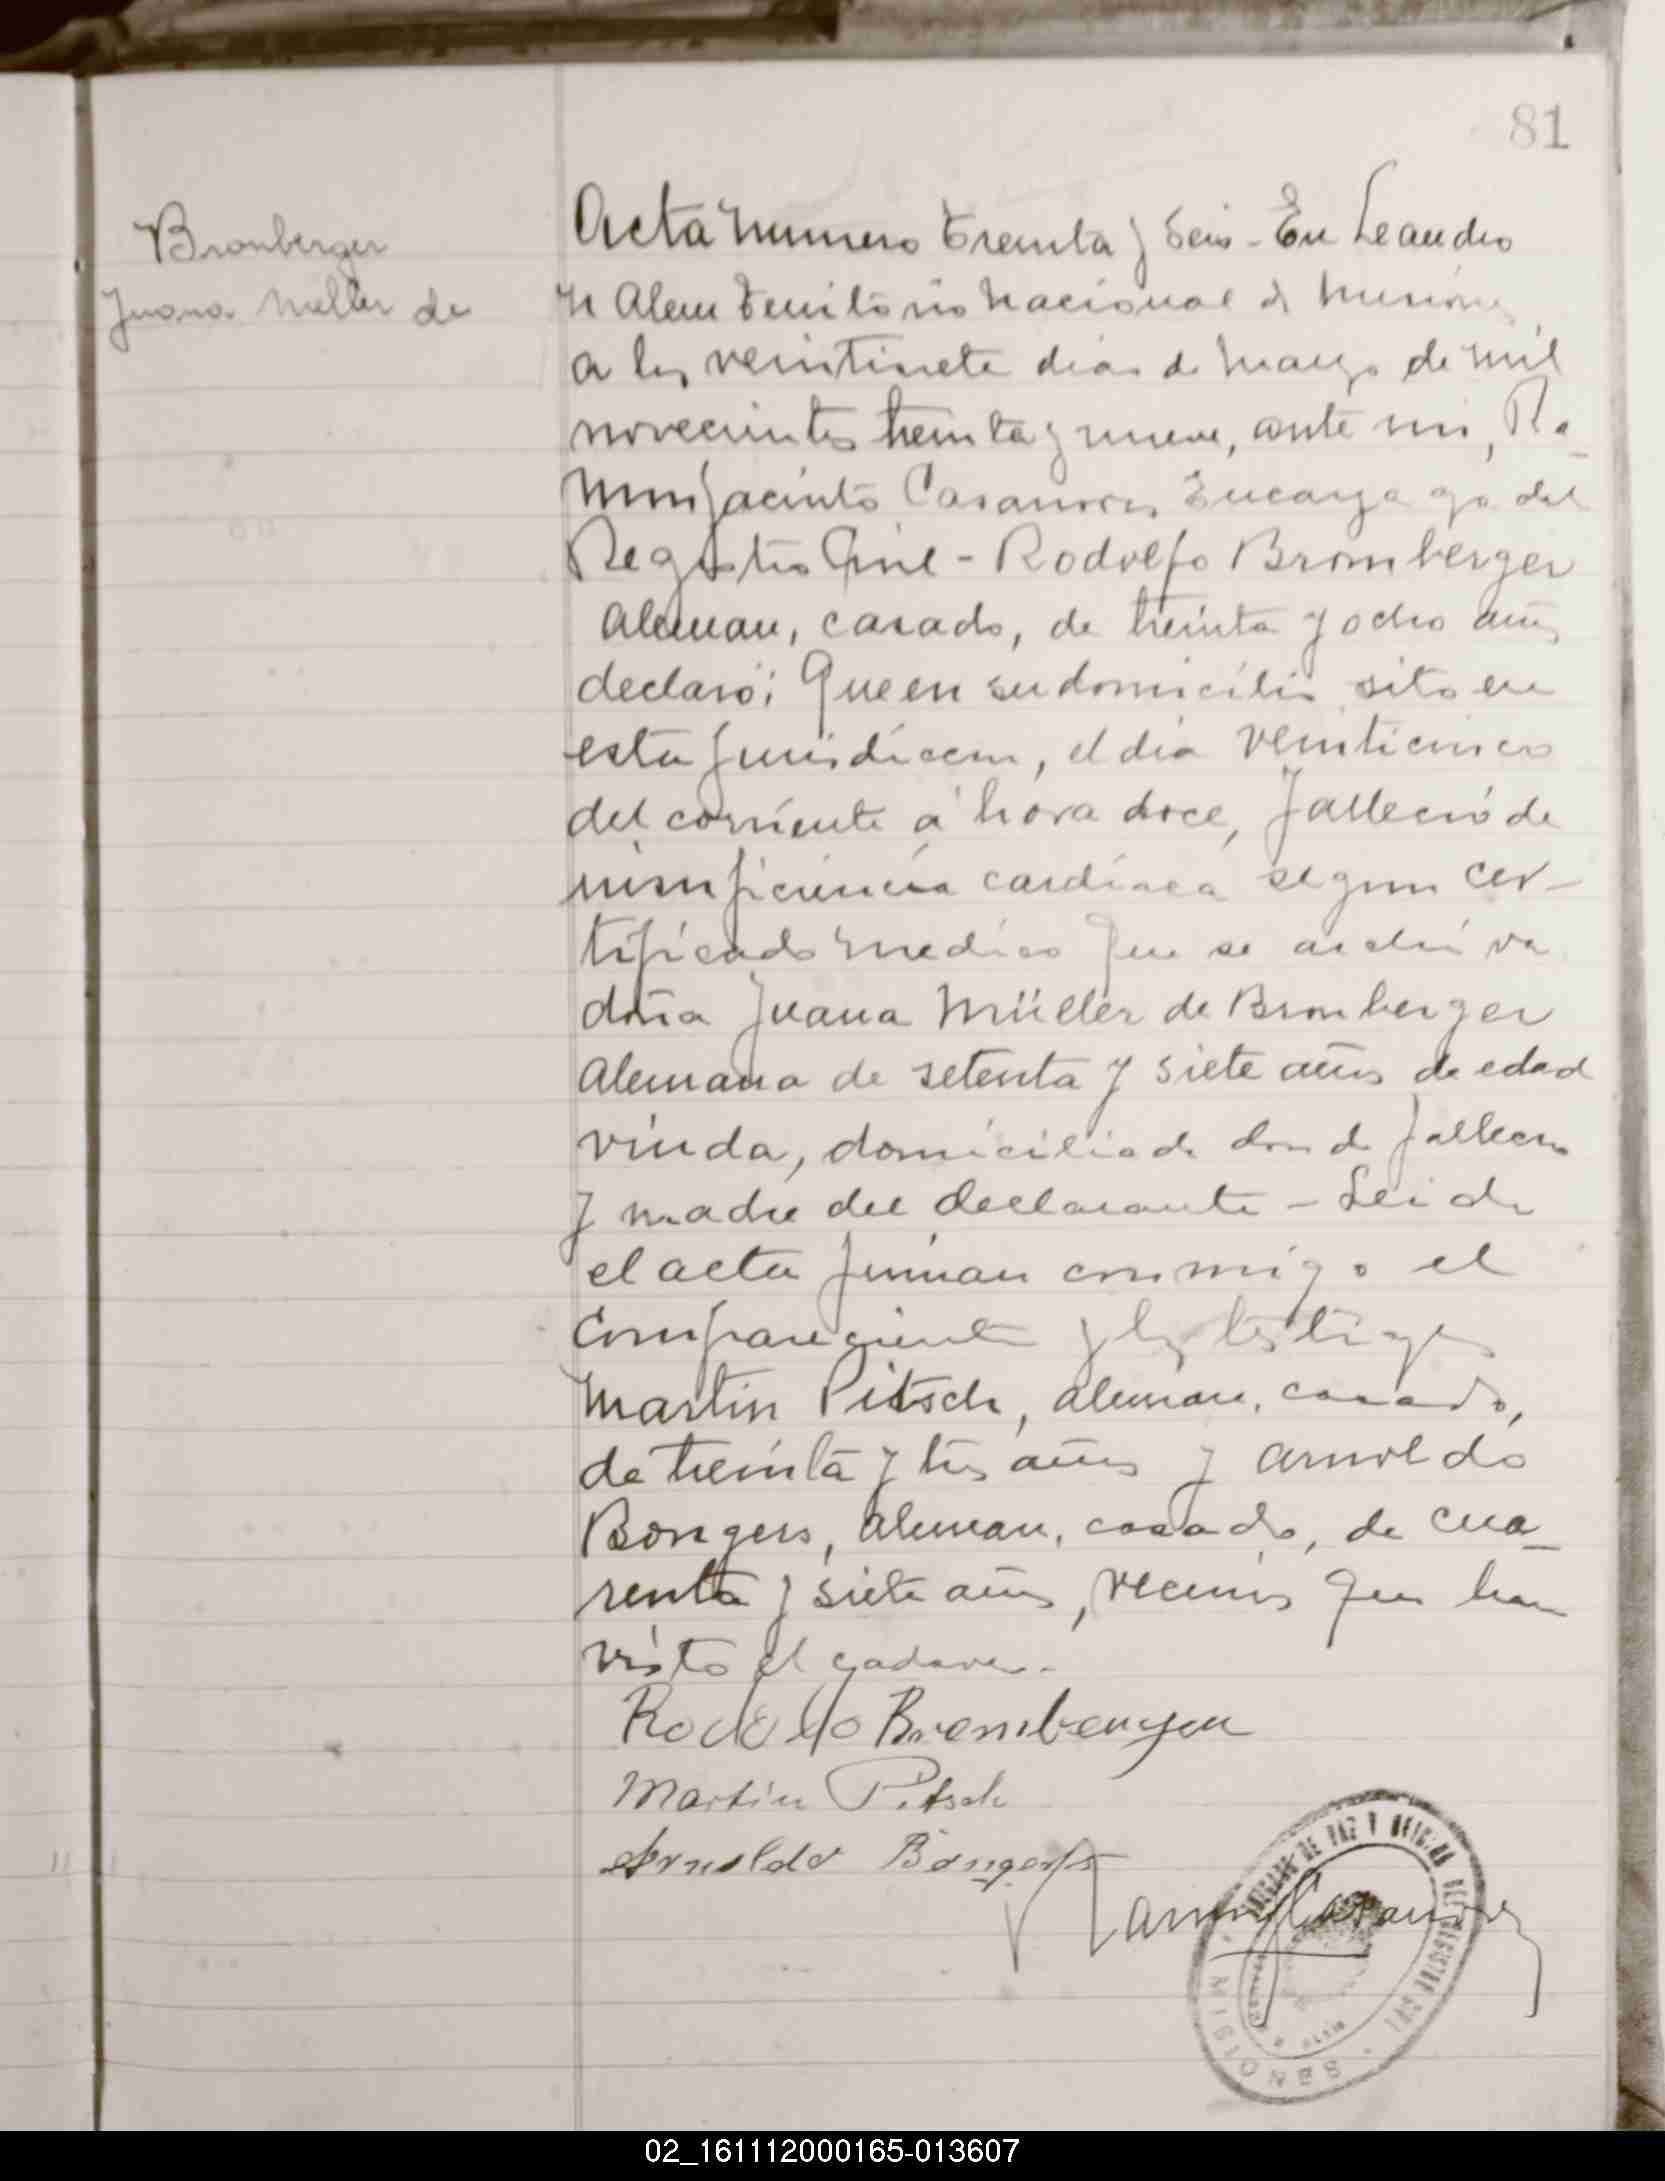 81
Bromberger
Juana Muller de
Acta Numero treinta y seis - En Leandro
N Alem territorio Nacional de Misiones
a los veintisiete dias de Marzo de mil
novecientos treinta y nueve, ante mi, Ra-
mon Jacinto Casanova Encargago del
Registro Civil - Rodolfo Bromberger
Aleman, casado, de treinta y ocho años
declaró: Que en su domicilio sito en
esta jurisdiccon, el dia veinticinco
del corriente á hora doce, falleció de
insuficiencia cardiaca segun cer-
tificado medico que se archiva
doña Juana Müller de Bromberger
Alemana de setenta y siete años de edad
viuda, domiciliada donde fallecio
y madre del declarante - Leida
el acta firman conmigo el
Compareciente y los testigos
Martin Pitsch, aleman, casado,
de treinta y tres años y Arnoldo
Bongers, aleman, casado, de cua-
renta y siete años, vecinos que han
visto el cadaver.-
Rodolfo Bromberger
Martin Pitsch
Arnoldo Bongers
Ramon J Casanova
JUZGADO DE PAZ Y OFICINA DEL REGISTRO CIVIL
MISIONES
02_161112000165-013607